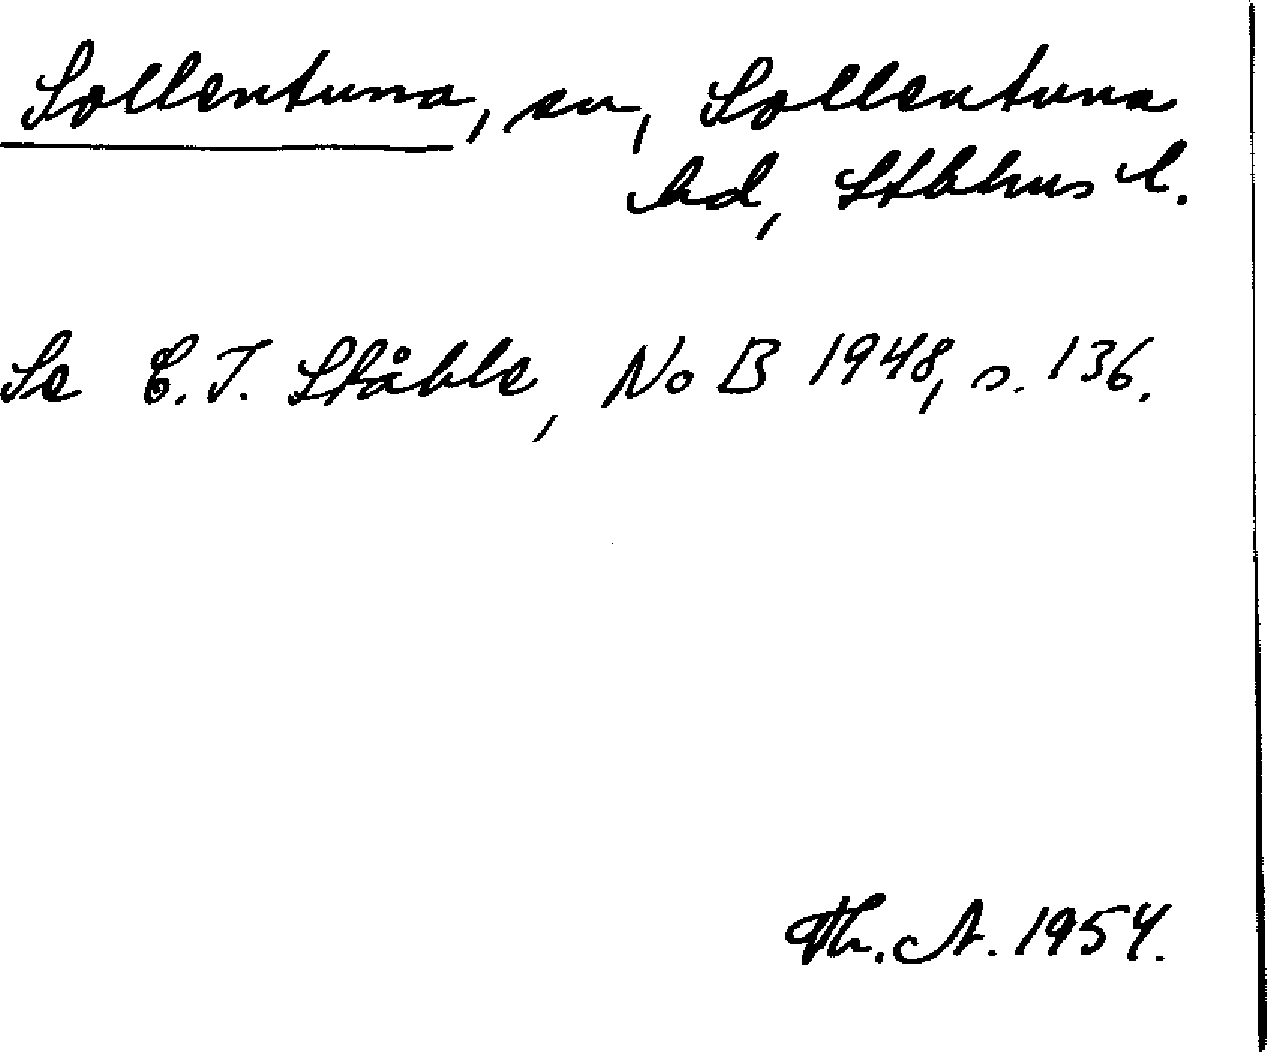 Sollentuna, sn, Sollentuna
hd, Sthlms l.
Se C.I. Ståhle, NoB 1948, s. 136.
Th. A. 1954.